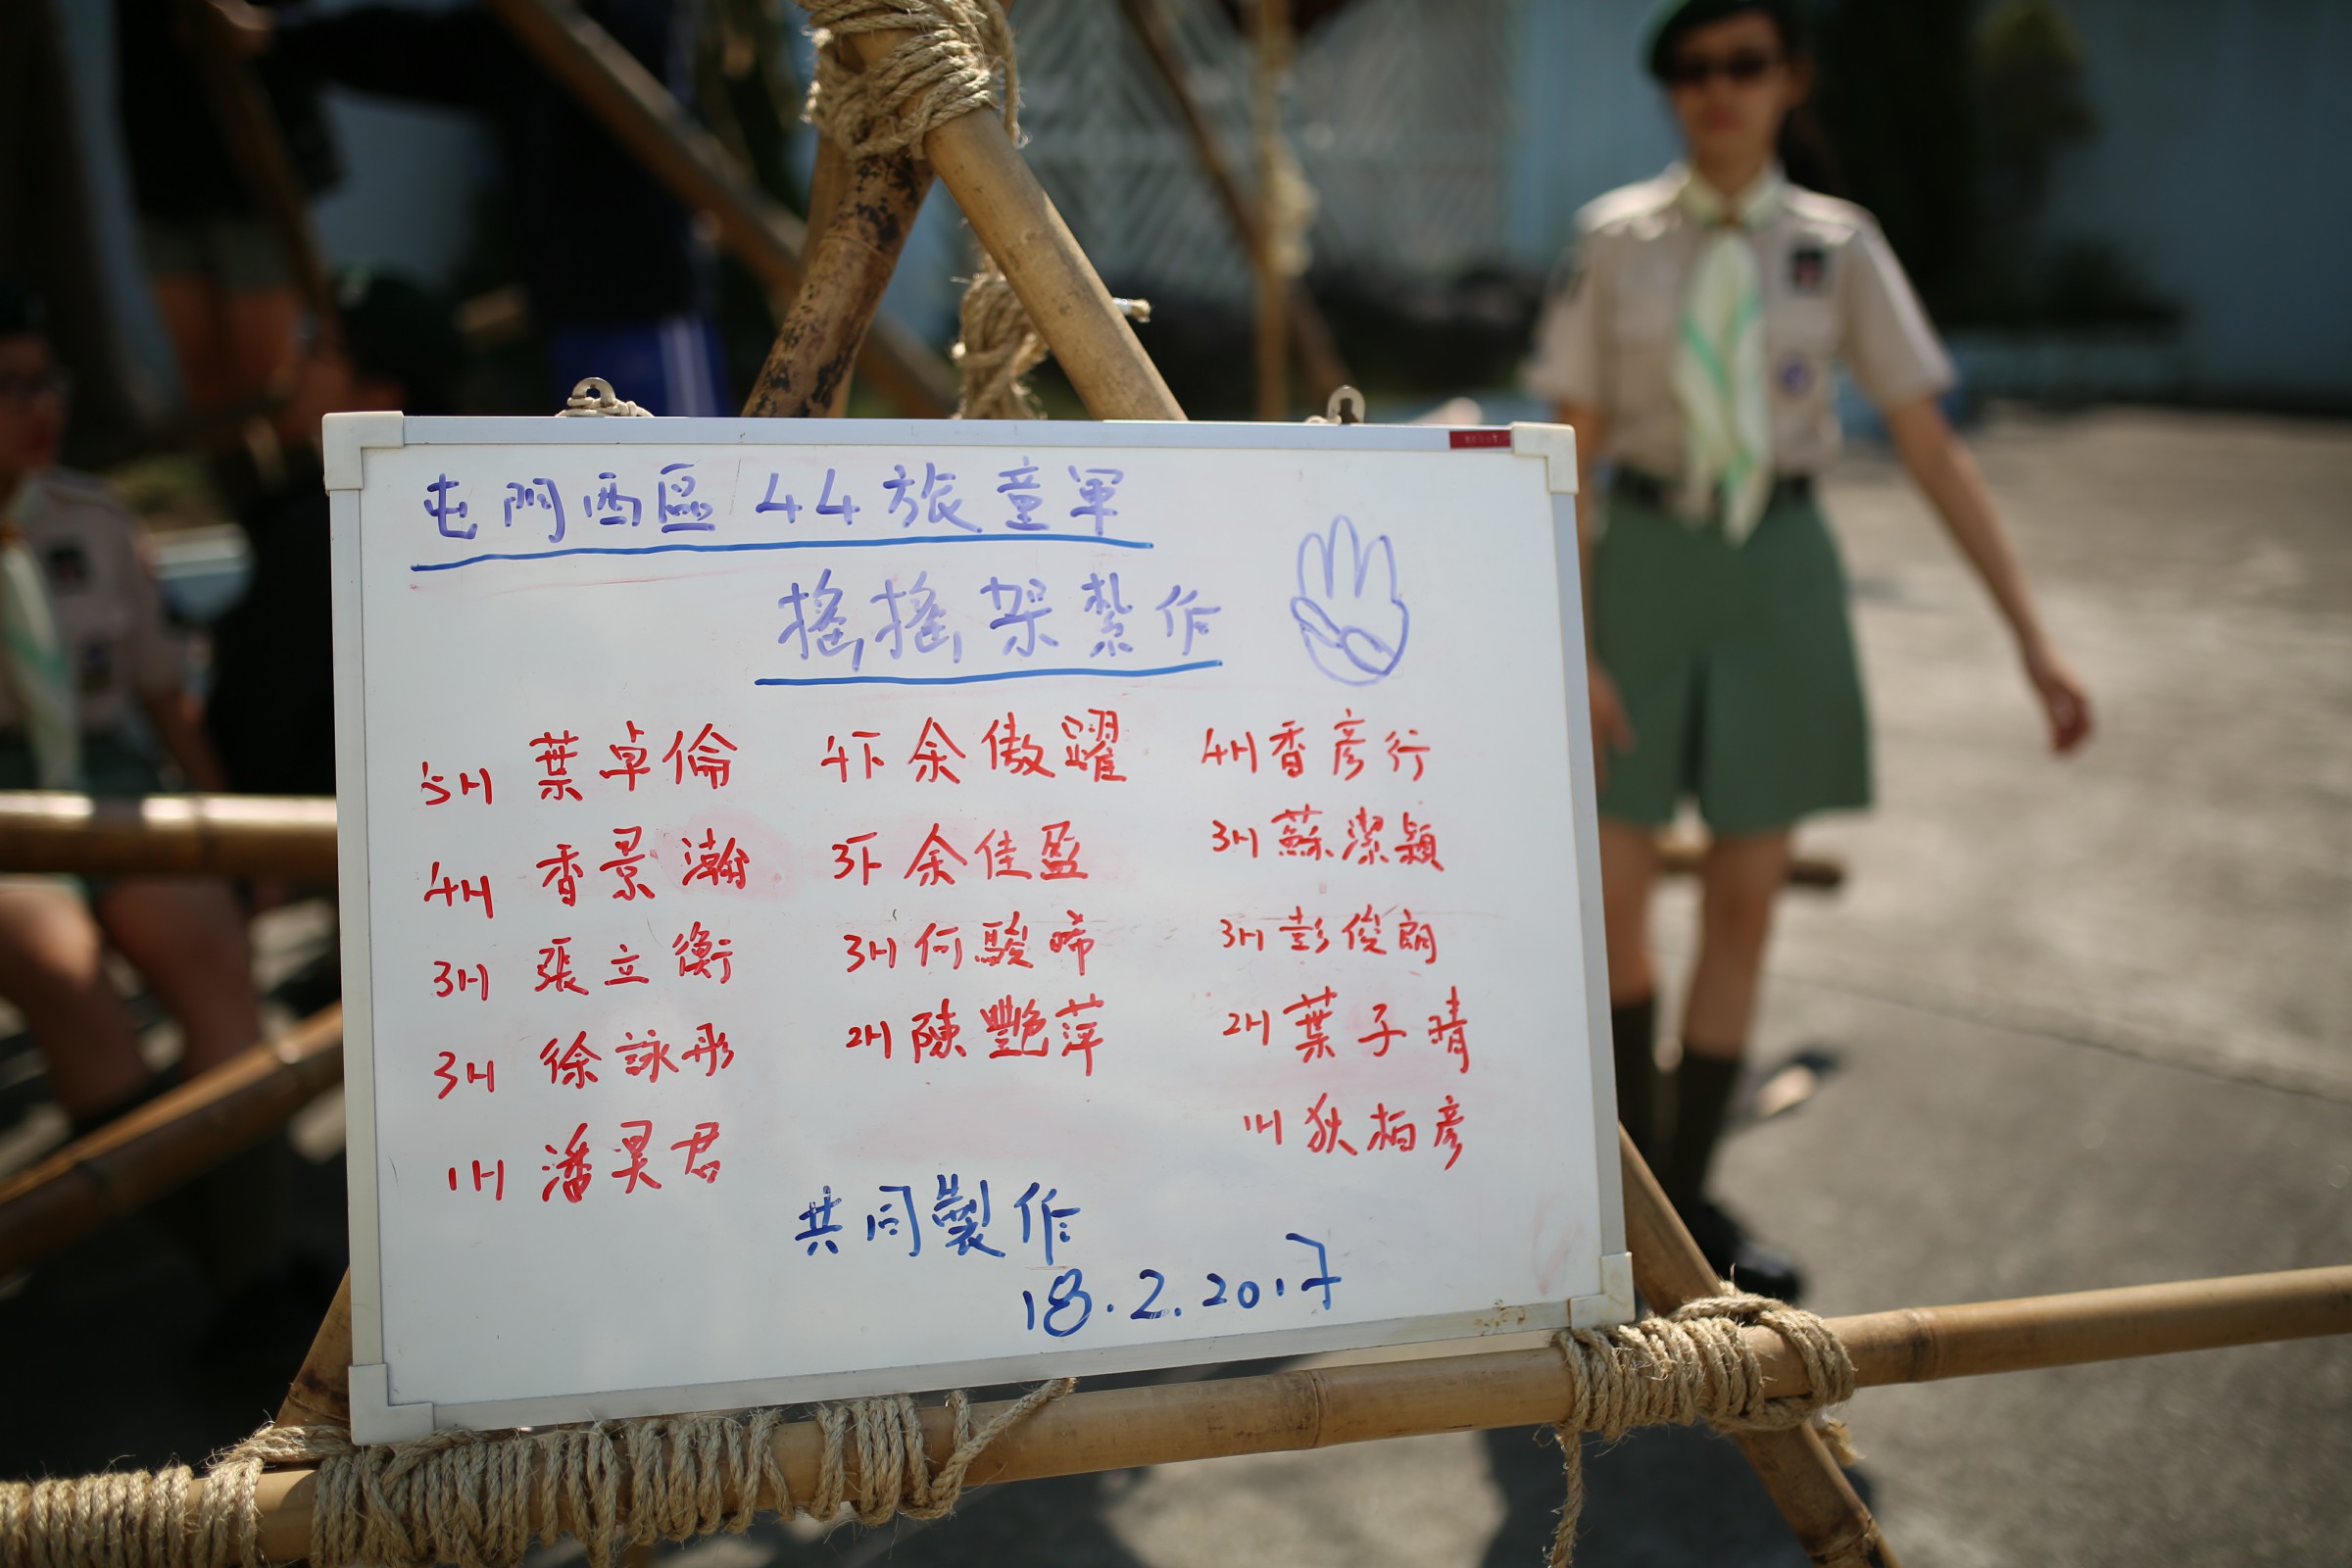 屯門西區44旅童軍
搖搖架紮作
5H 葉卓倫 4F 余傲躍 4H 香彥行
4H 香景瀚 3F 余佳盈 3H 蘇潔穎
3H 張立衡 3H 何駿晞 3H 彭俊朗
3H 徐詠彤 2H 陳艷萍 2H 葉子晴
1H 潘昊君 1H 狄栢彥
共同製作
18.2.2017